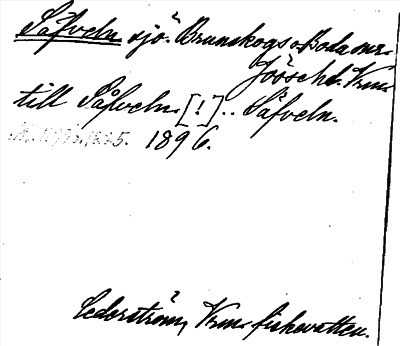 Säfveln sjö. Brunskogs o Boda snr.
Jösseh. Vrm.
till Såfveln [!] .. Säfveln.
1896.
Cederström, Vrm. fiskevatten.